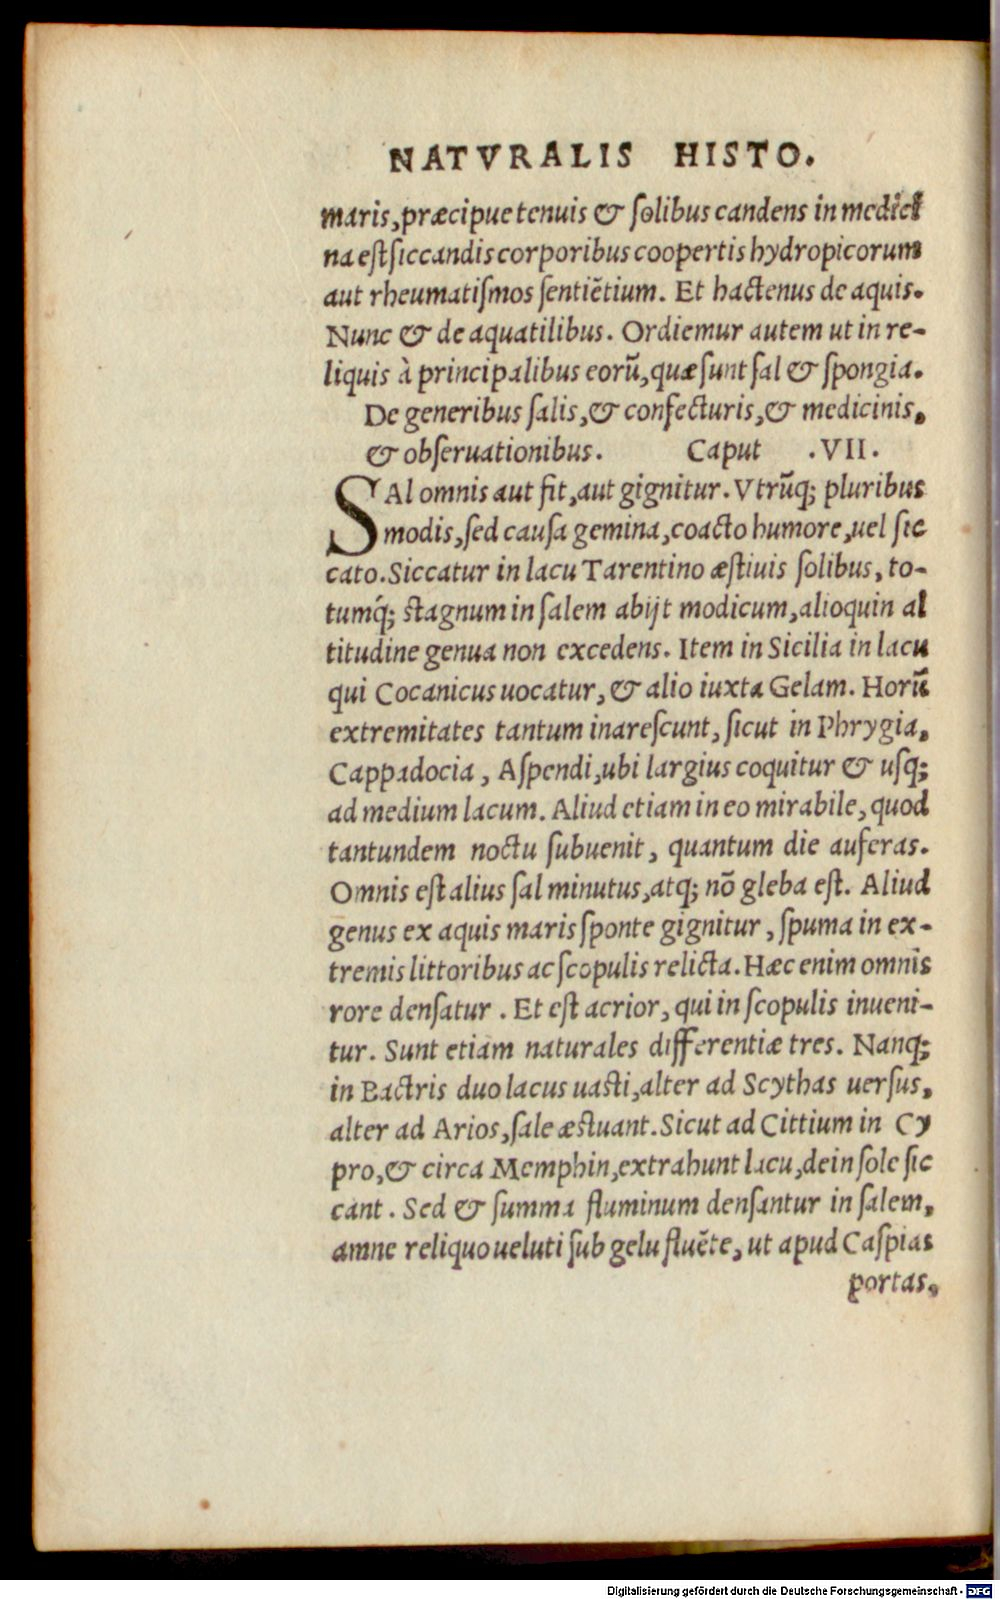 NATVRALIS HISTO.
maris, præcipue tenuis & ſolibus candens in medici
na eſt ſiccandis corporibus coopertis hydropicorum
aut rheumatiſmos ſentiẽtium. Et hactenus de aquis.
Nunc & de aquatilibus. Ordiemur autem ut in re-
liquis à principalibus eorũ, quæ ſunt ſal & ſpongia.
De generibus ſalis, & confecturis, & medicinis,
& obſeruationibus. Caput .VII.
SAl omnis aut fit, aut gignitur. Vtrũq; pluribus
modis, ſed cauſa gemina, coacto humore, uel ſic
cato. Siccatur in lacu Tarentino æſtiuis ſolibus, to-
tumq́; ſtagnum in ſalem abijt modicum, alioquin al
titudine genua non excedens. Item in Sicilia in lacu
qui Cocanicus uocatur, & alio iuxta Gelam. Horũ
extremitates tantum inareſcunt, ſicut in Phrygia,
Cappadocia, Aſpendi, ubi largius coquitur & uſq;
ad medium lacum. Aliud etiam in eo mirabile, quod
tantundem noctu ſubuenit, quantum die auferas.
Omnis eſt alius ſal minutus, atq; nõ gleba eſt. Aliud
genus ex aquis maris ſponte gignitur, ſpuma in ex-
tremis littoribus ac ſcopulis relicta. Hæc enim omnis
rore denſatur. Et eſt acrior, qui in ſcopulis inueni-
tur. Sunt etiam naturales differentiæ tres. Nanq;
in Bactris duo lacus uaſti, alter ad Scythas uerſus,
alter ad Arios, ſale æſtuant. Sicut ad Cittium in Cy
pro, & circa Memphin, extrahunt lacu, dein ſole ſic
cant. Sed & ſumma fluminum denſantur in ſalem,
amne reliquo ueluti ſub gelu fluẽte, ut apud Caſpias
portas,
Digitalisierung gefördert durch die Deutsche Forschungsgemeinschaft - DFG